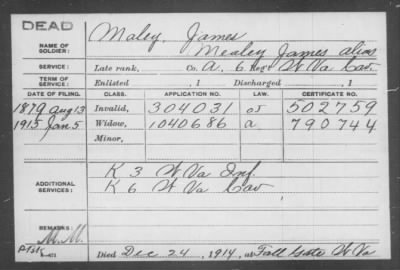 DEAD
NAME OF SOLDIER: Maley, James
Mealey James alias
SERVICE: Late rank, Co. A, 6 Reg't W Va Cav.
TERM OF SERVICE: Enlisted , 1 Discharged , 1
DATE OF FILING. CLASS. APPLICATION NO. LAW. CERTIFICATE NO.
1879 Aug 13 Invalid, 304031 502759
1915 Jan 5 Widow, 1040686 a 790744
Minor,
ADDITIONAL SERVICES: K 3 W Va Inf.
K 6 W Va Cav
REMARKS: M.M.
Died Dec 24, 1914, at W Va